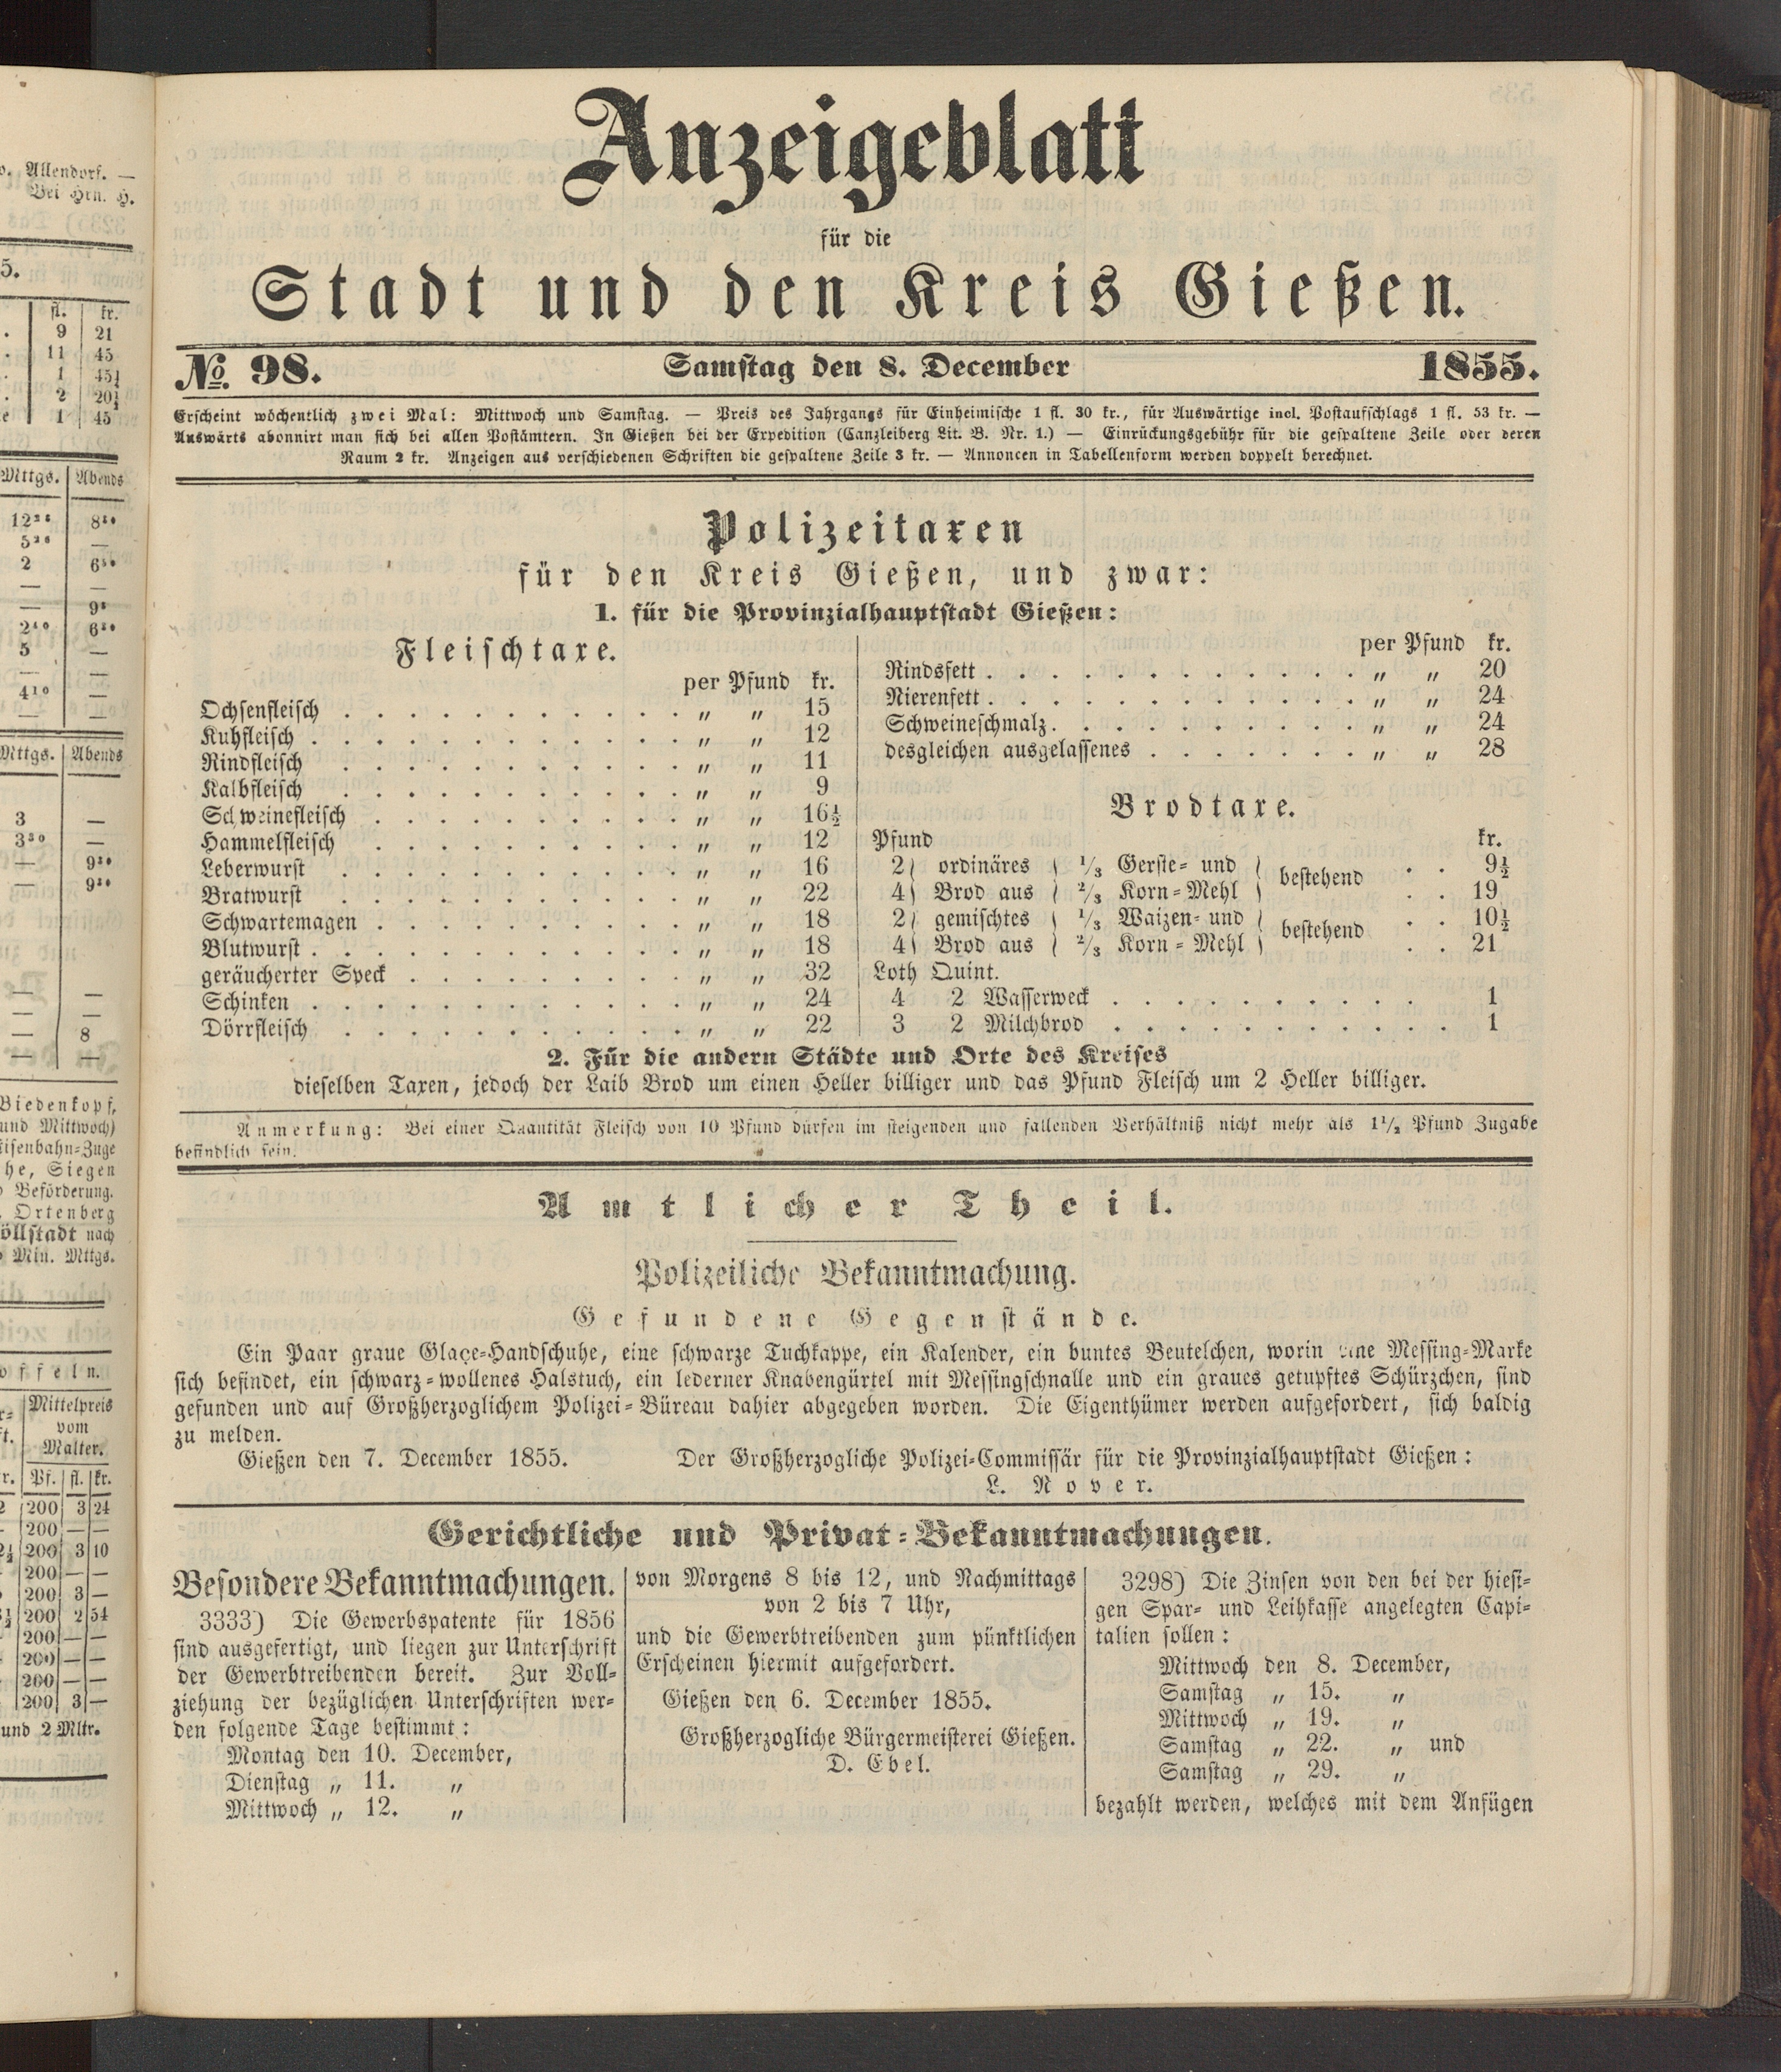 o. Allendorf. —
Bei Hrn. H.
5.
fl. kr.
9 21
11 45
1 45½
2 20½
1 45
Mttgs. Abends
Mttgs. Abends
Biedenkopf,
und Mittwoch)
he, Siegen
Beförderung.
Ortenberg
öllstadt nach
Min. Mttgs.
offeln.
Mittelpreis
vom
Malter.
Pf. fl. kr.
200 3 24
200 — —
200 3 10
200 — —
200 3 —
200 2 54
200 — —
200 — —
200 — —
200 3 —
und 2 Mltr.
Anzeigeblatt
für die
Stadt und den Kreis Gießen.
No. 98. Samstag den 8. December 1855.
Erscheint wöchentlich zwei Mal: Mittwoch und Samstag. — Preis des Jahrgangs für Einheimische 1 fl. 30 kr., für Auswärtige incl. Postaufschlags 1 fl. 53 kr. —
Auswärts abonnirt man sich bei allen Postämtern. In Gießen bei der Expedition (Canzleiberg Lit. B. Nr. 1.) — Einrückungsgebühr für die gespaltene Zeile oder deren
Raum 2 kr. Anzeigen aus verschiedenen Schriften die gespaltene Zeile 3 kr. — Annoncen in Tabellenform werden doppelt berechnet.
Polizeitaxen
für den Kreis Gießen, und zwar:
1. für die Provinzialhauptstadt Gießen:
Fleischtaxe.
per Pfund kr.
Ochsenfleisch . . . . . . . . . . . „ „ 15
Kuhfleisch . . . . . . . . . . . . „ „ 12
Rindfleisch . . . . . . . . . . . „ „ 11
Kalbfleisch . . . . . . . . . . . „ „ 9
Schweinefleisch . . . . . . . . . . „ „ 16½
Hammelfleisch . . . . . . . . . . „ „ 12
Leberwurst . . . . . . . . . . . „ „ 16
Bratwurst . . . . . . . . . . . „ „ 22
Schwartemagen . . . . . . . . . . „ „ 18
Blutwurst . . . . . . . . . . . . „ „ 18
geräucherter Speck . . . . . . . . . „ „ 32
Schinken . . . . . . . . . . . . „ „ 24
Dörrfleisch . . . . . . . . . . . „ „ 22
per Pfund kr.
Rindsfett . . . . . . . . . . . . „ „ 20
Nierenfett . . . . . . . . . . . . „ „ 24
Schweineschmalz . . . . . . . . . . „ „ 24
desgleichen ausgelassenes . . . . . . . „ „ 28
Brodtaxe.
Pfund kr.
2) ordinäres ( 1/3 Gerste- und ) bestehend . . 9½
4) Brod aus ( 2/3 Korn-Mehl ) . . 19
2) gemischtes ( 1/3 Waizen- und ) bestehend . . 10½
4) Brod aus ( 2/3 Korn-Mehl ) . . 21
Loth Quint.
4 2 Wasserweck . . . . . . . . . . 1
3 2 Milchbrod . . . . . . . . . . . 1
2. Für die andern Städte und Orte des Kreises
dieselben Taxen, jedoch der Laib Brod um einen Heller billiger und das Pfund Fleisch um 2 Heller billiger.
Anmerkung: Bei einer Quantität Fleisch von 10 Pfund dürfen im steigenden und fallenden Verhältniß nicht mehr als 1½ Pfund Zugabe
befindlich sein.
Amtlicher Theil.
Polizeiliche Bekanntmachung.
Gefundene Gegenstände.
Ein Paar graue Glaçe-Handschuhe, eine schwarze Tuchkappe, ein Kalender, ein buntes Beutelchen, worin eine Messing-Marke
sich befindet, ein schwarz-wollenes Halstuch, ein lederner Knabengürtel mit Messingschnalle und ein graues getupftes Schürzchen, sind
gefunden und auf Großherzoglichem Polizei-Büreau dahier abgegeben worden. Die Eigenthümer werden aufgefordert, sich baldig
zu melden.
Gießen den 7. December 1855. Der Großherzogliche Polizei-Commissär für die Provinzialhauptstadt Gießen:
L. Nover.
Gerichtliche und Privat-Bekanntmachungen.
Besondere Bekanntmachungen.
3333) Die Gewerbspatente für 1856
sind ausgefertigt, und liegen zur Unterschrift
der Gewerbtreibenden bereit. Zur Voll-
ziehung der bezüglichen Unterschriften wer-
den folgende Tage bestimmt:
Montag den 10. December,
Dienstag „ 11. „
Mittwoch „ 12. „
von Morgens 8 bis 12, und Nachmittags
von 2 bis 7 Uhr,
und die Gewerbtreibenden zum pünktlichen
Erscheinen hiermit aufgefordert.
Gießen den 6. December 1855.
Großherzogliche Bürgermeisterei Gießen.
D. Ebel.
3298) Die Zinsen von den bei der hiesi-
gen Spar- und Leihkasse angelegten Capi-
talien sollen:
Mittwoch den 8. December,
Samstag „ 15. „
Mittwoch „ 19. „
Samstag „ 22. „ und
Samstag „ 29. „
bezahlt werden, welches mit dem Anfügen